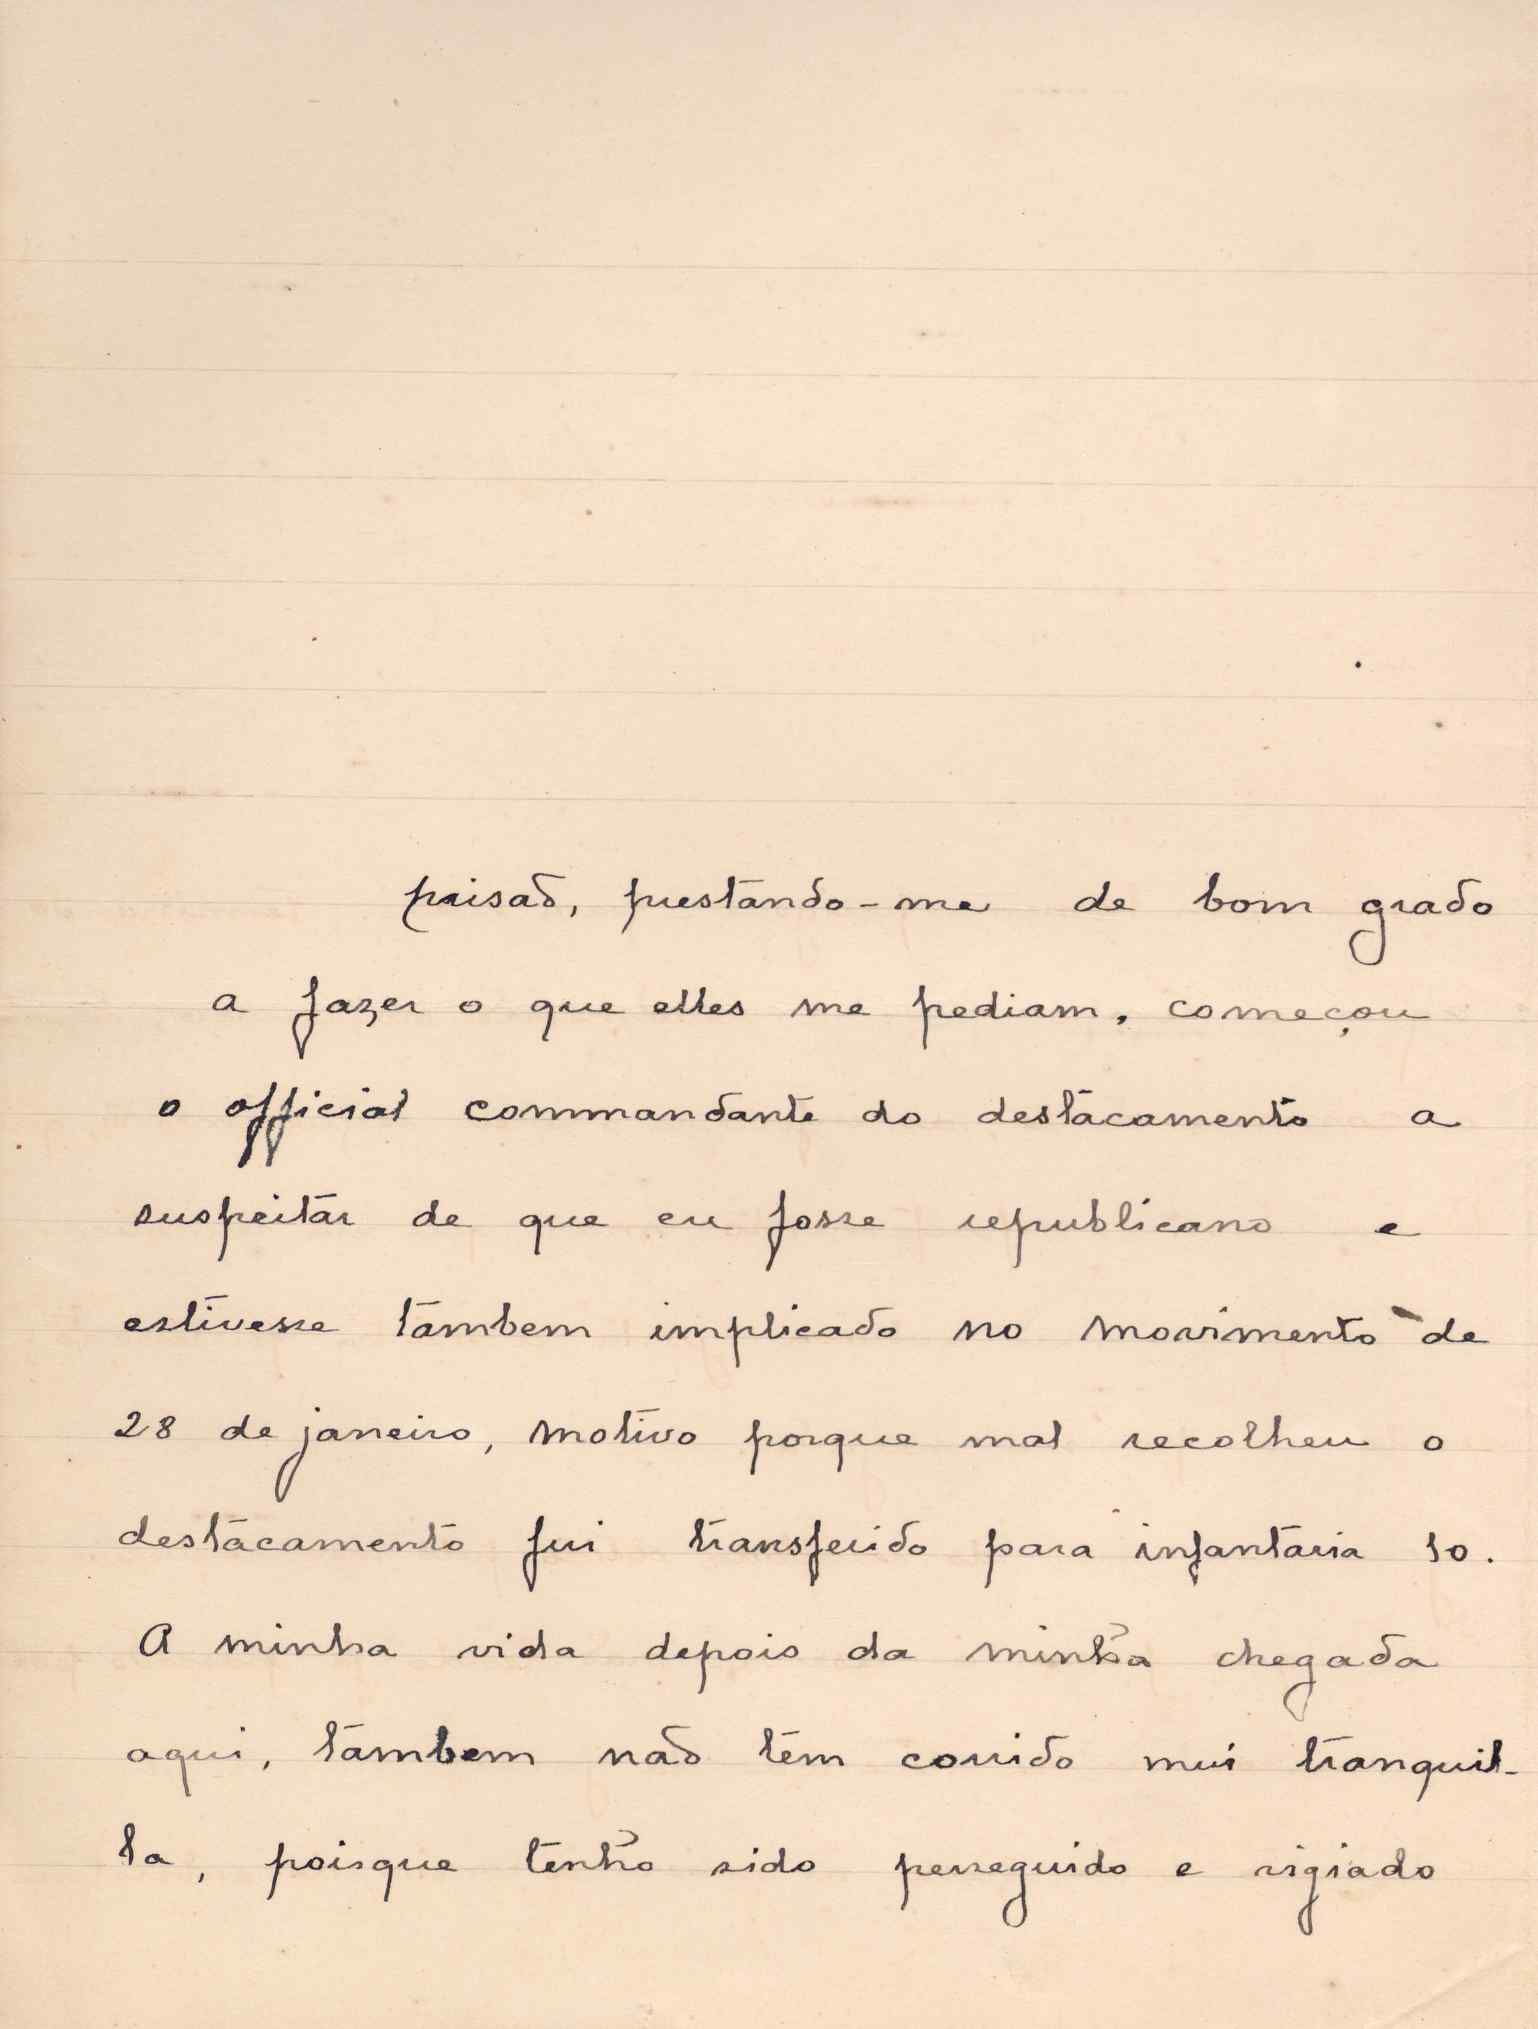 prisão, prestando-me de bom grado
a fazer o que elles me pediam, começou
o official commandante do destacamento a
suspeitar de que eu fosse republicano e
estivesse tambem implicado no movimento de
28 de janeiro, motivo porque mal recolheu o
destacamento fui transferido para infantaria 10.
A minha vida depois da minha chegada
aqui, tambem não tem corrido mui tranquil-
la, poisque tenho sido perseguido e vigiado